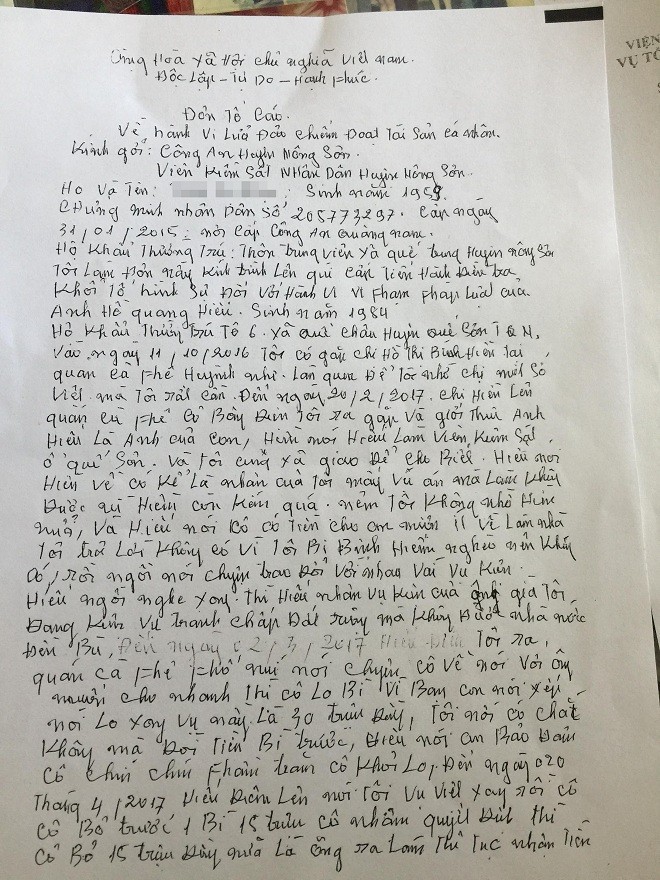 Cộng Hòa Xã Hội chủ nghĩa Việt nam.
Độc Lập - Tự Do - Hạnh phúc.
VIỆN
VỤ TỔ
Đơn Tố Cáo.
Về hành Vi Lừa Đảo chiếm Đoạt Tài Sản cá nhân.
Kính gởi: Công An Huyện Nông Sơn.
Viên Kiểm Sát Nhân Dân Huyện Nông Sơn.
Họ Và Tên: Sinh năm 1959.
Chứng minh nhân Dân Số 205773297. Cấp ngày
31/01/2015: nơi cấp Công An Quảng nam.
Hộ Khẩu Thường Trú: Thôn trung viên xã quế trung Huyện nông Sơn
Tôi Làm Đơn này Kính trình Lên quí cấp Tiến Hành Điều tra
Khởi Tố hình Sự Đối Với Hành Vi Vi Phạm Pháp Luật của
Anh Hồ quang Hiếu. Sinh năm 1984
Hộ Khẩu Thường Trú Tổ 6. xã Quế châu Huyện Quế Sơn TQN,
Vào ngày 11/10/2016 Tôi có gặp chị Hồ Thị Bình Hiền tại
quán cà phê Huỳnh nhi. Làm quen Để Tôi nhờ chị một Số
Việc mà Tôi rất cần. Đến ngày 20/2/2017. chị Hiền Lên
quán cà phê cô Bảy Điện Tôi ra gặp Và giới Thiệu Anh
Hiếu Là Anh của con, Hiền nói Hiếu Làm Viện Kiểm Sát,
ở quế Sơn. Và Tôi cũng xã giao Để cho Biết. Hiếu nói
Hiền về có Kể Là nhận của Tôi mấy Vụ an mà Làm Không
Được vì Hiền còn Kém quá. nêm Tôi Không nhờ Hiền
nữa, Và Hiếu nói Cô có Tiền cho con mượn ít Về Làm nhà
Tôi trả Lời Không có Vì Tôi Bị Bệnh Hiểm nghèo nên Không
có, rồi ngồi nói chuyện trao Đổi Với nhau Vài Vụ Kiện.
Hiếu ngồi nghe xong. Thì Hiếu nhận Vụ Kiện của ông già Tôi
Đang Kiện Vụ tranh chấp Đất ruộng mà Không Được nhà nước
Đền Bù, Đến ngày 02/3/2017 Hiếu Điện Tôi ra,
quán cà phê phố núi nói chuyện cô về nói Với ông
muốn cho nhanh Thì cô Lo Bì Vì Bạn con nói xếp
nói Lo xong Vụ này Là 30 triệu Đồng, Tôi nói có chắc
Không mà Đòi Tiền Bì trước, Hiếu nói con Bảo Đảm
cô chín chín Phần trăm cô Khỏi Lo, Đến ngày 020
Tháng 4/2017 Hiếu Điện Lên nói Tôi Vụ Việc xong rồi cô
cô Bỏ trước 1 Bì 15 triệu cô nhậm quyết Định thì
cô Bỏ 15 triệu Đồng nữa Là ông ra Làm Thủ Tục nhận Tiền